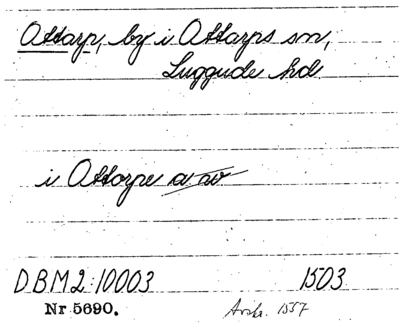 Attarp, by i Attarps sn,
Luggude hd
i Attorpe a w
DBM2:10003 1503
Nr 5690. Avskr. 1557